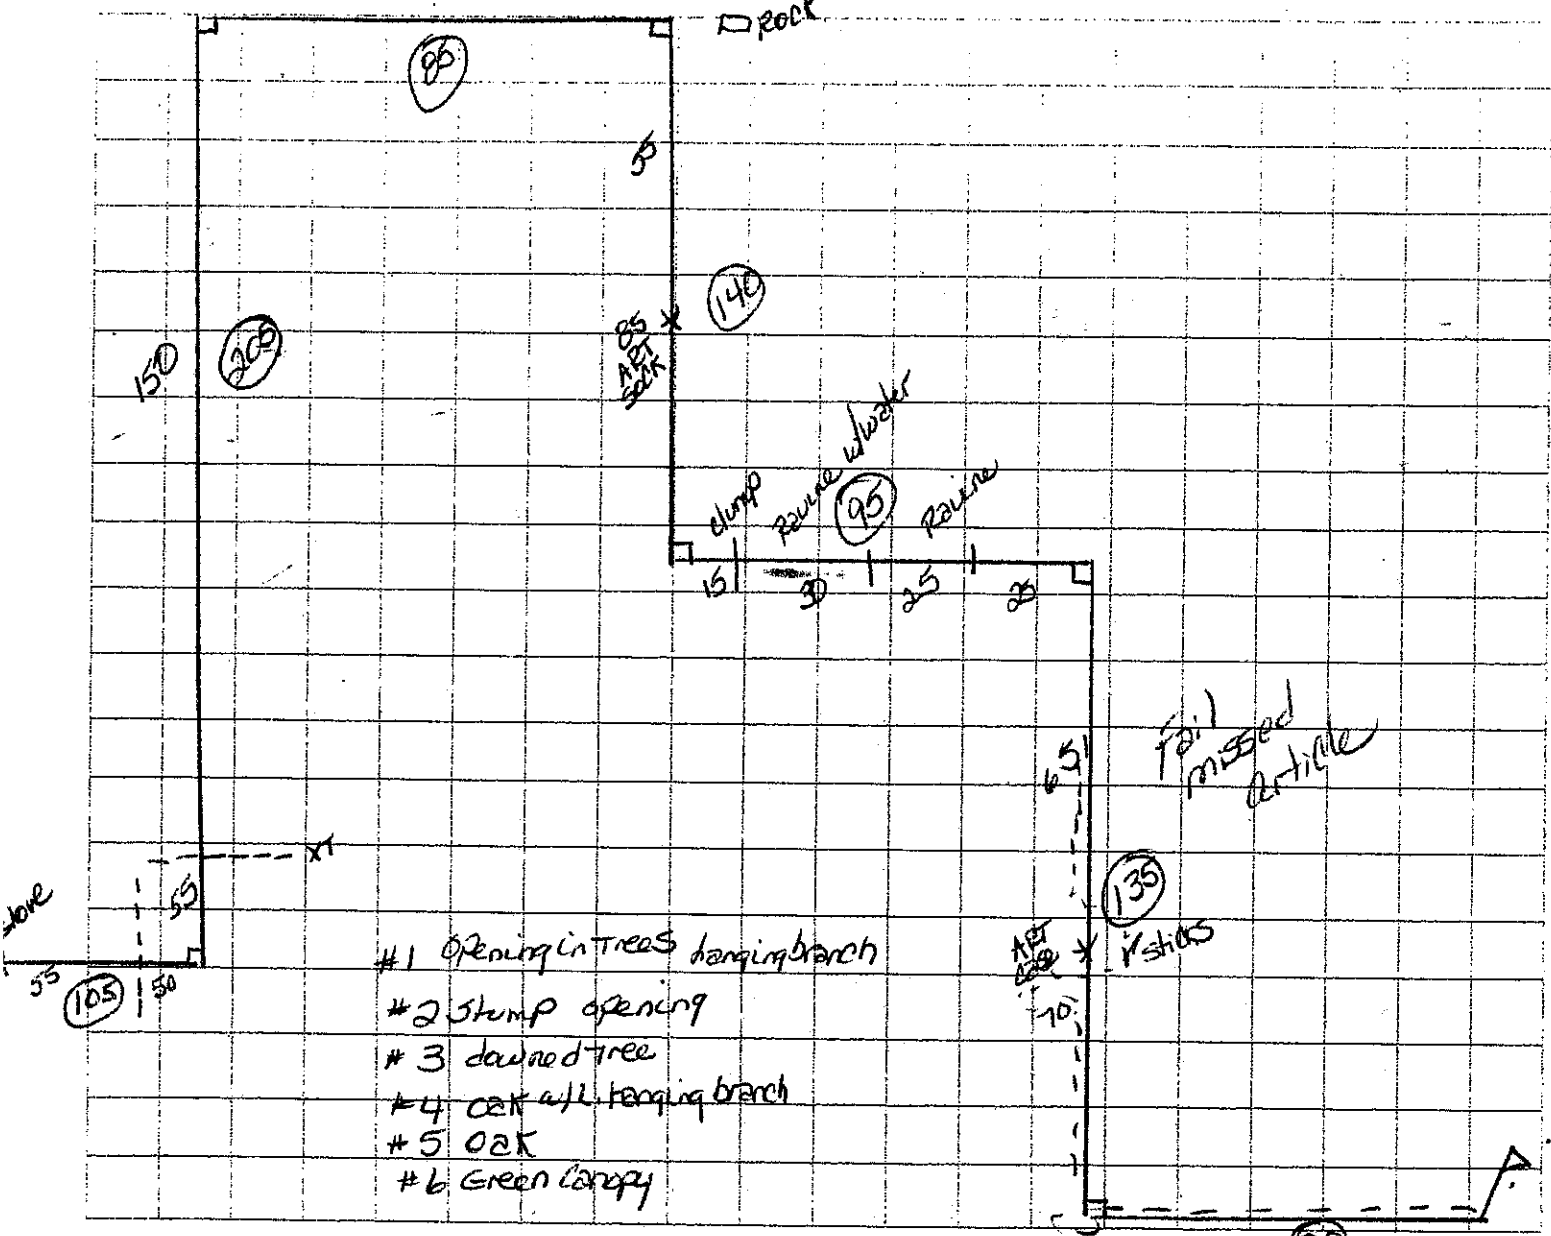 ROCK
85
55
140
85
ART
SOCK
150
205
clump
Ravine w/water
95
Ravine
15
30
25
25
65
Fail
missed
article
XT
55
135
ART
sticks
70
55
105
50
#1 Opening in Trees hanging branch
#2 Stump opening
#3 downed tree
#4 oak w/L. hanging branch
#5 Oak
#6 Green Canopy